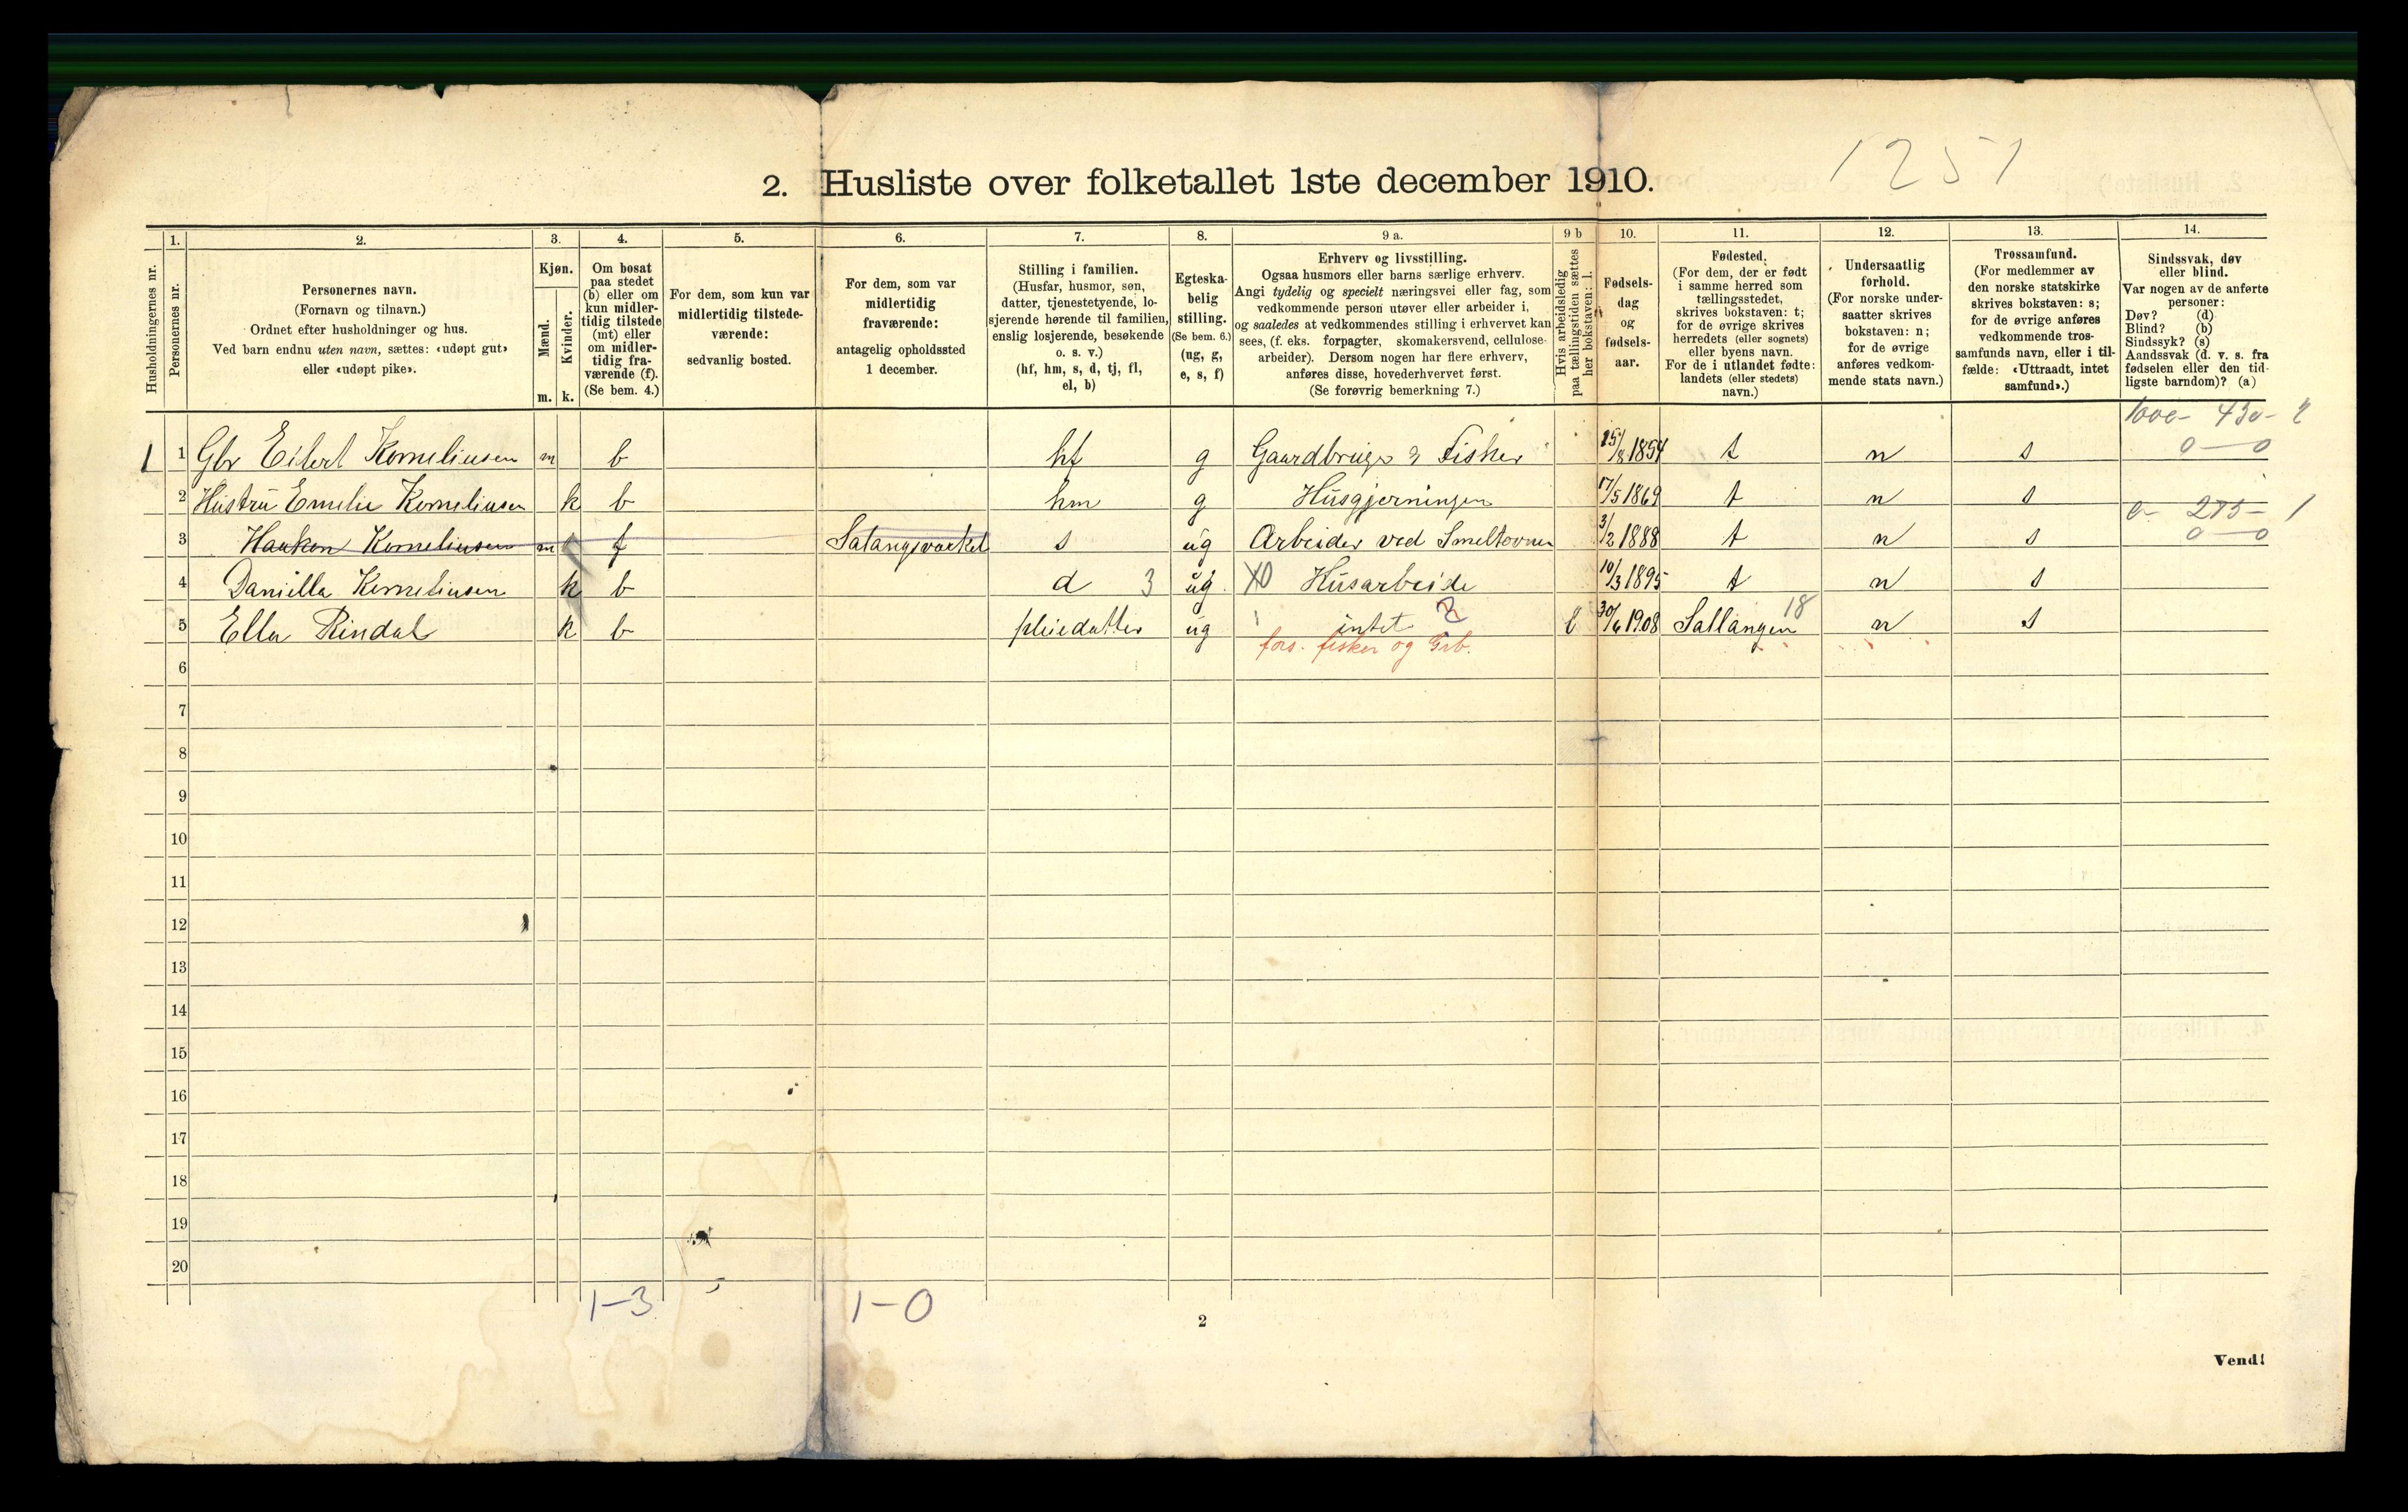 1251
2. Husliste over folketallet 1ste december 1910.
Husholdningernes nr.
1.
Personernes nr.
2.
Personernes navn.
(Fornavn og tilnavn.)
Ordnet efter husholdninger og hus.
Ved barn endnu uten navn, sættes: «udøpt gut»
eller «udøpt pike».
3.
Kjøn.
Mænd.
Kvinder.
m. k.
4.
Om bosat
paa stedet
(b) eller om
kun midler-
tidig tilstede
(mt) eller
om midler-
tidig fra-
værende (f).
(Se bem. 4.)
5.
For dem, som kun var
midlertidig tilstede-
værende:
sedvanlig bosted.
6.
For dem, som var
midlertidig
fraværende:
antagelig opholdssted
1 december.
7.
Stilling i familien.
(Husfar, husmor, søn,
datter, tjenestetyende, lo-
sjerende hørende til familien,
enslig losjerende, besøkende
o. s. v.)
(hf, hm, s, d, tj, fl,
el, b)
8.
Egteska-
belig
stilling.
(Se bem. 6.)
(ug, g,
e, s, f)
9 a.
Erhverv og livsstilling.
Ogsaa husmors eller barns særlige erhverv.
Angi tydelig og specielt næringsvei eller fag, som
vedkommende person utøver eller arbeider i,
og saaledes at vedkommendes stilling i erhvervet kan
sees, (f. eks. forpagter, skomakersvend, cellulose-
arbeider). Dersom nogen har flere erhverv,
anføres disse, hovederhvervet først.
(Se forøvrig bemerkning 7.)
9 b
Hvis arbeidsledig
paa tællingstiden sættes
her bokstaven: l.
10.
Fødsels-
dag
og
fødsels-
aar.
11.
Fødested.
(For dem, der er født
i samme herred som
tællingsstedet,
skrives bokstaven: t;
for de øvrige skrives
herredets (eller sognets)
eller byens navn.
For de i utlandet fødte:
landets (eller stedets)
navn.)
12.
Undersaatlig
forhold.
(For norske under-
saatter skrives
bokstaven: n;
for de øvrige
anføres vedkom-
mende stats navn.)
13.
Trossamfund.
(For medlemmer av
den norske statskirke
skrives bokstaven: s;
for de øvrige anføres
vedkommende tros-
samfunds navn, eller i til-
fælde: «Uttraadt, intet
samfund».)
14.
Sindssvak, døv
eller blind.
Var nogen av de anførte
personer:
Døv? (d)
Blind? (b)
Sindssyk? (s)
Aandssvak (d. v. s. fra
fødselen eller den tid-
ligste barndom)? (a)
1 1 Gbr Eilert Korneliusen m b hf g Gaardbruger & Fisker 15/8 1854 t n s 0–0
2 Hustru Emelie Korneliusen k b hm g Husgjerningen 17/5 1869 t n s
3 Haakon Korneliusen m f Salangsværket s ug Arbeider ved Smelteovnen 3/2 1888 t n s 0–0
4 Daniella Korneliusen k b d 3 ug X0 Husarbeide 10/3 1895 t n s
5 Ella Rindal k b pleiedatter ug intet l 30/6 1908 Sallangen 18 n s
fors. fisker og Grb.
6
7
8
9
10
11
12
13
14
15
16
17
18
19
20
1–3 1–0
2
Vend!